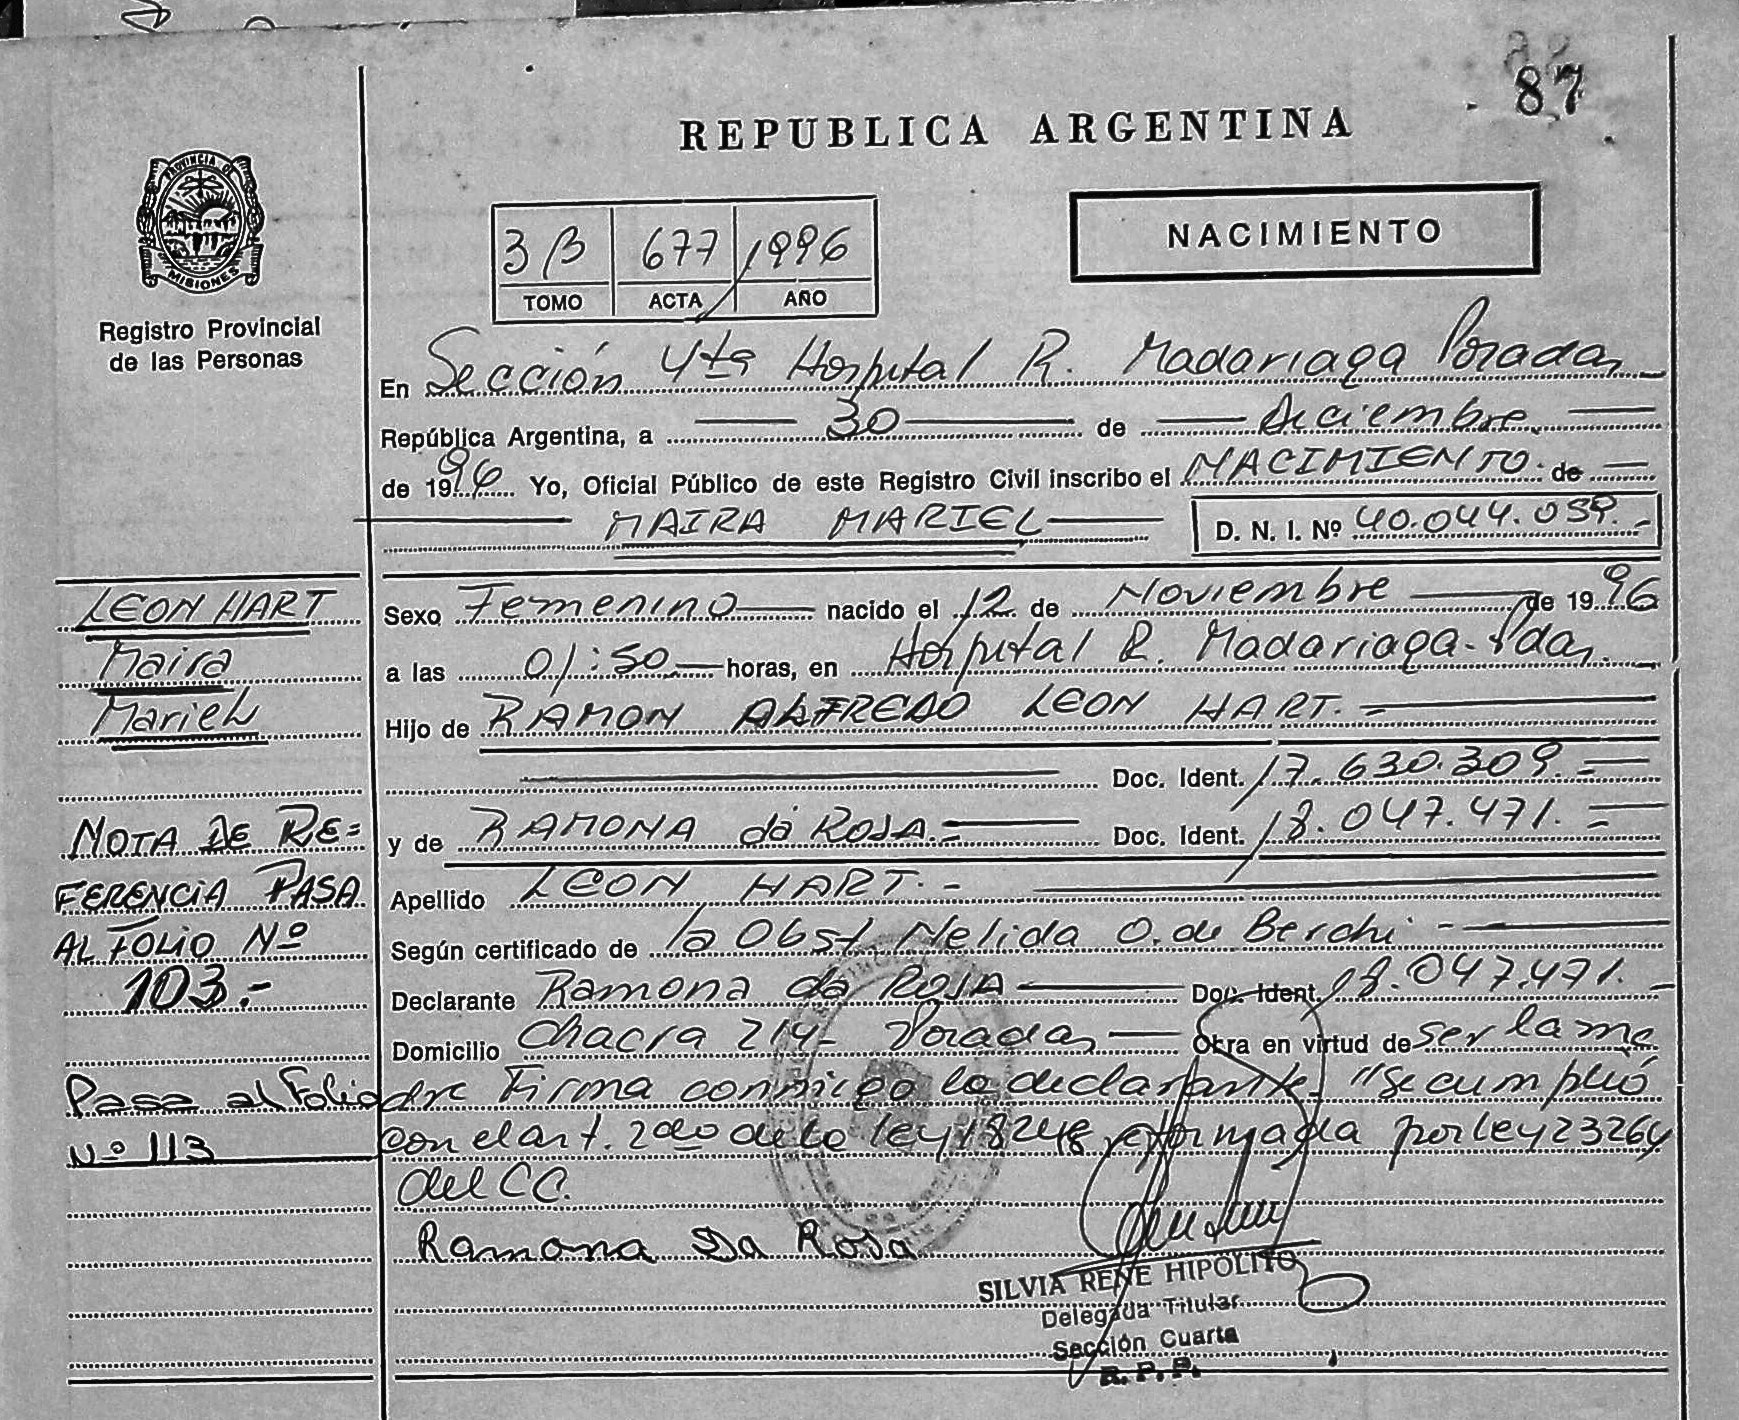 87
REPUBLICA ARGENTINA
PROVINCIA DE
MISIONES
Registro Provincial
de las Personas
3 B 677 1996
TOMO ACTA AÑO
NACIMIENTO
En Sección 4ta Hospital R. Madariaga Posadas
República Argentina, a 30 de diciembre
de 1996 Yo, Oficial Público de este Registro Civil inscribo el NACIMIENTO. de
MAIRA MARIEL
D. N. I. Nº 40.044.059.-
LEON HART
Maira
Mariel
Sexo Femenino nacido el 12 de Noviembre de 1996
a las 01:50 horas, en Hospital R. Madariaga - Pdas.
Hijo de RAMON ALFREDO LEON HART.=
Doc. Ident. 17.630.309.=
y de RAMONA da ROSA.= Doc. Ident. 18.047.471. =
Apellido LEON HART.-
Según certificado de la Obst Nelida O. de Berchi -
Declarante Ramona da ROSA Doc. Ident. 18.047.471. -
Domicilio Chacra 214- Posadas Obra en virtud de ser la ma
dre Firma conmigo la declarante "Se cumplió
con el art. 2do de la ley 18248 reformada por ley 23264
del CC.
NOTA DE RE=
FERENCIA PASA
AL FOLIO Nº
103.-
Pasa al Folio
Nº 113
Ramona Da Rosa
SILVIA RENE HIPOLITO
Delegada Titular
Sección Cuarta
R. P. P.